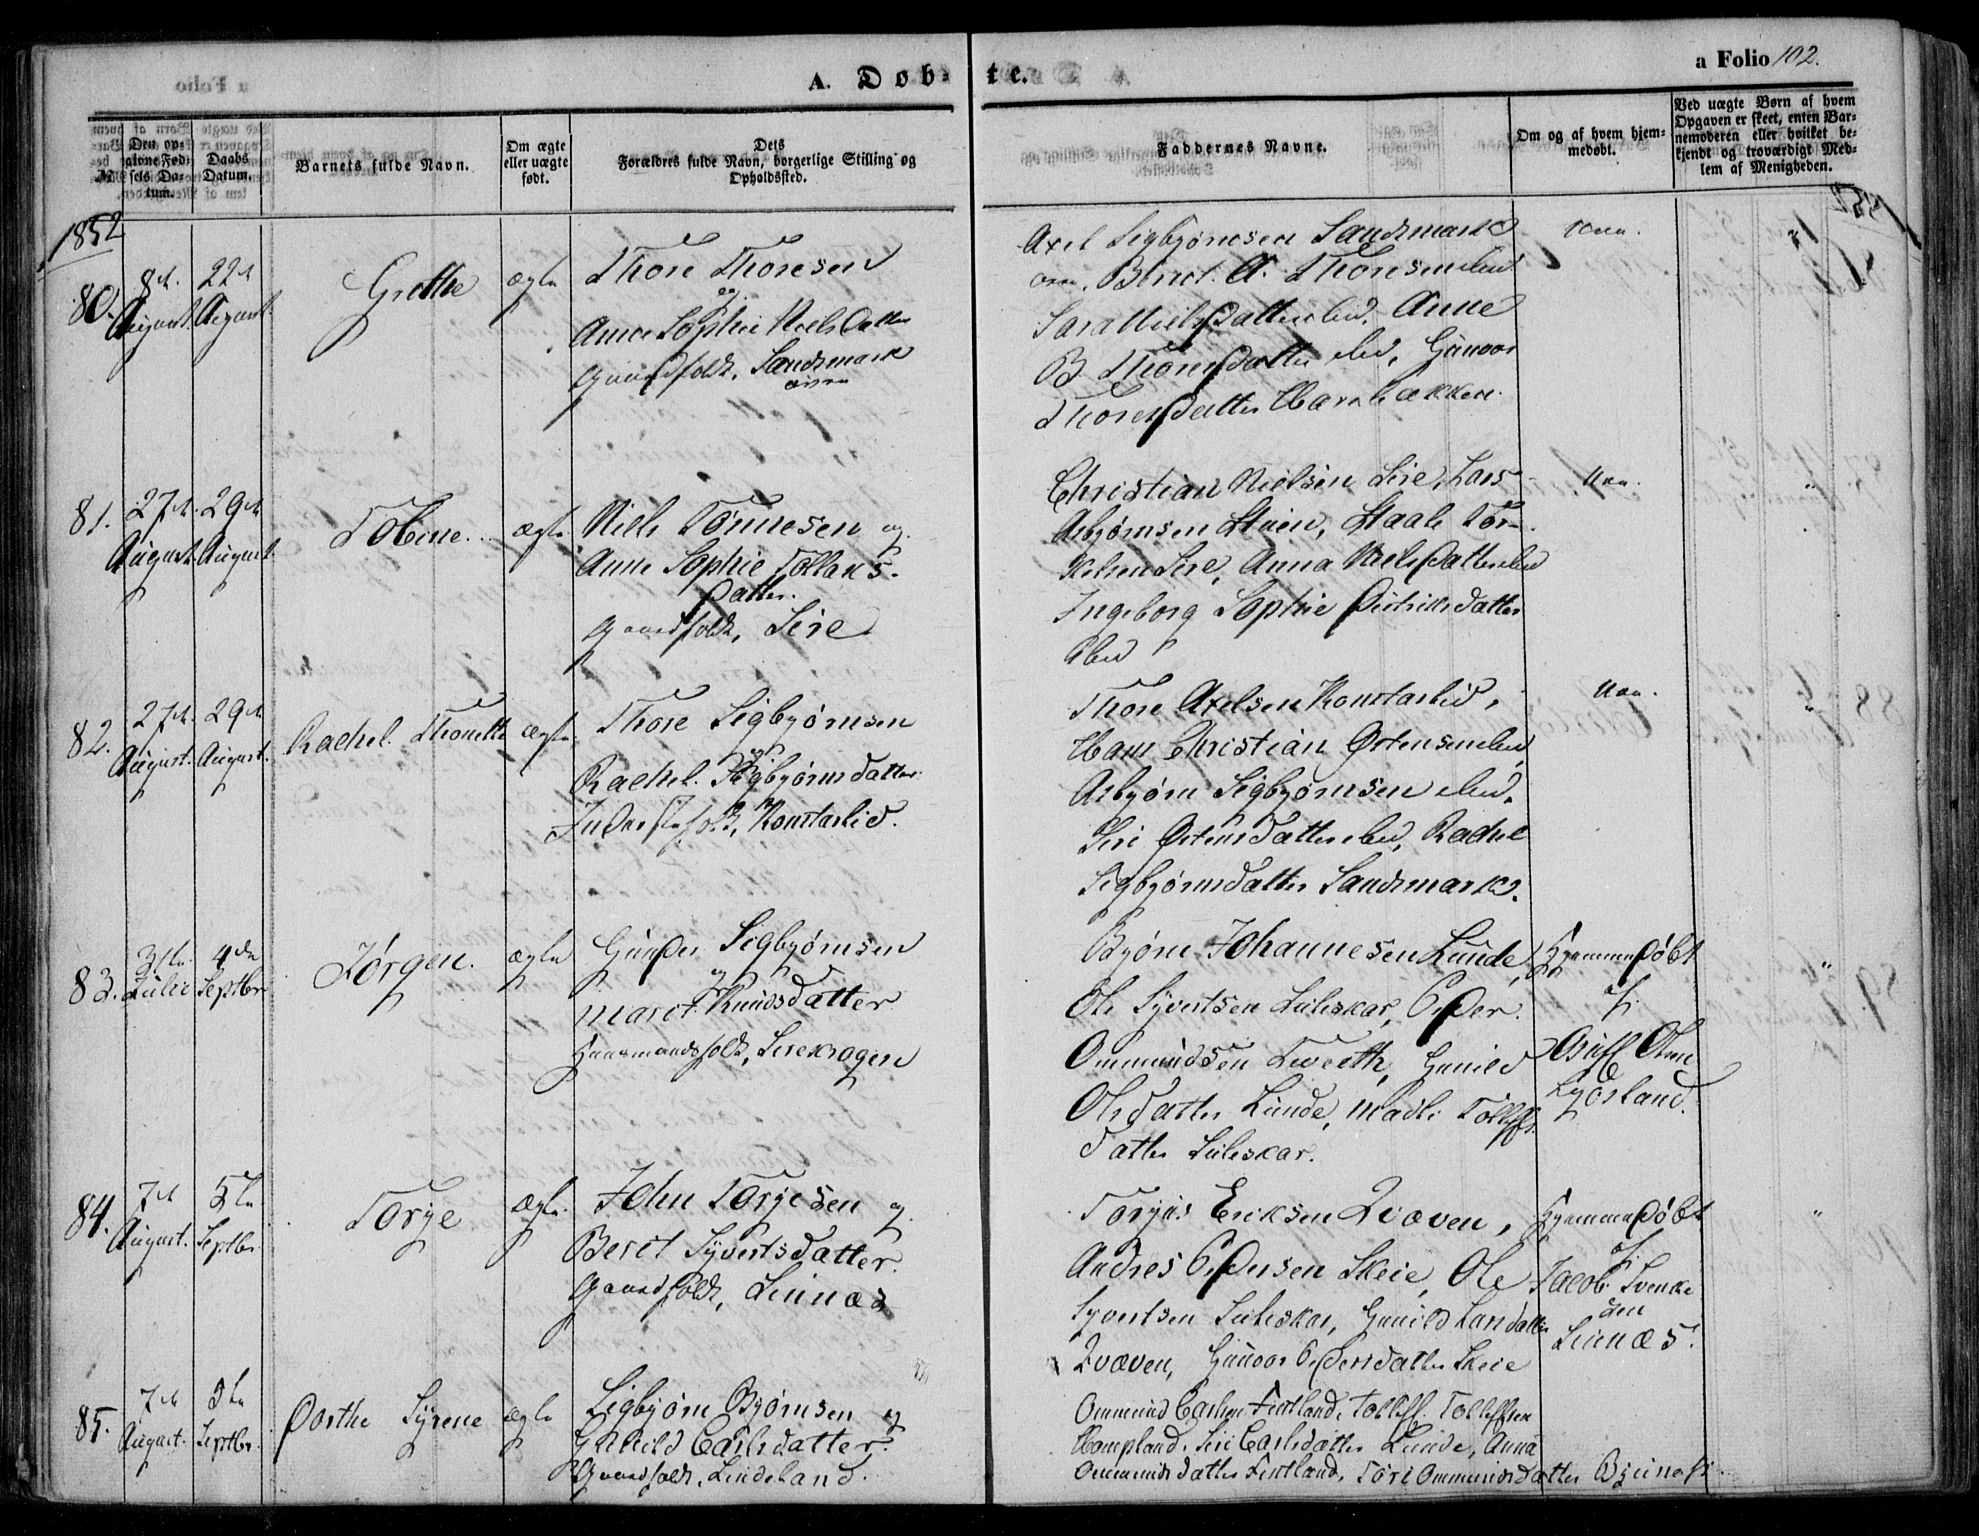 A. Døb-
te.
a Folio 102.
№
Den op-
givne Fød-
sels Da-
tum.
Daabs
Datum.
Barnets fulde Navn.
Om ægte
eller uægte
født.
Dets
Forældres fulde Navn, borgerlige Stilling og
Opholdssted.
Faddernes Navne.
Om og af hvem hjem-
medøbt.
Ved uægte Børn af hvem
Opgaven er skeet, enten Bar-
nemoderen eller hvilket be-
kjendt og troværdigt Med-
lem af Menigheden.
1852
80.
8de
August.
22de
August.
Grethe
ægte
Thore Thoresen
og
Anne Sophie Niels Datter
Gaardfolk, Sandsmark
Axel Sigbjørnsen Sandsmark
Berret A. Thorsen ibid
Sara Niels Datter ibid. Anne
B. Thores Datter ibid, Gunvor
Thores Datter
81.
27de
August.
29de
August.
Tobine.
ægte
Niels Tønnesen og
Anne Sophie Tollaks-
Datter.
Gaardfolk, Sire
Christian Nielsen Sire, Lars
Asbjørnsen Stuen, Staale Tor-
kelsen Sire, Anna Niels Datter ibid
Ingeborg Sophie Didriks Datter
ibid
82.
27de
August.
29de
August.
Rachel Thonette
ægte
Thore Sigbjørnsen
og
Rachel Sigbjørnsdatter
Inderstfolk, Konstalid.
Thore Axelsen Konstalid,
Hans Christian Østensen ibid
Asbjørn Sigbjørnsen ibid.
Siri Østensdatter ibid, Rachel
Sigbjørnsdatter Sandsmark.
83.
31te
Julie
4de
Septbr
Jørgen.
ægte
Gunder Sigbjørnsen
og
Maret Knudsdatter
Huusmandsfolk, Sirekrogen
Bjørn Johannesen Lunde,
Ole Syvertsen Suleskar, Peder
Ommundsen Tveeth, Gunild
Olsdatter Lunde, Madli Tollefs-
datter Suleskar.
Hjemmedøbt
af
Osuff Olsen
Lyosland.
84.
7de
August.
5te
Septbr
Torje
ægte
John Torjesen og
Berit Syvertsdatter.
Gaardfolk, Liinæs
Torjus Eriksen Qvæven,
Andres Pedersen Skeie, Ole
Syvertsen Suleskar, Gunild Larsdatter
Qvæven, Gunvor Pedersdatter Skeie
Hjemmedøbt
af
Jacob Svenke
sen
Liinæs.
85.
7de
August.
5te
Septbr.
Dorthe Syrene
ægte
Sigbjørn Bjørnsen og
Gunild Carlsdatter.
Gaardfolk, Lindeland.
Ommund Carlsen Fiotland, Tollef Tollefsen
Hompland, Siri Carlsdatter Lunde, Anna
Ommundsdatter Fiotland, Tori Ommundsdatter